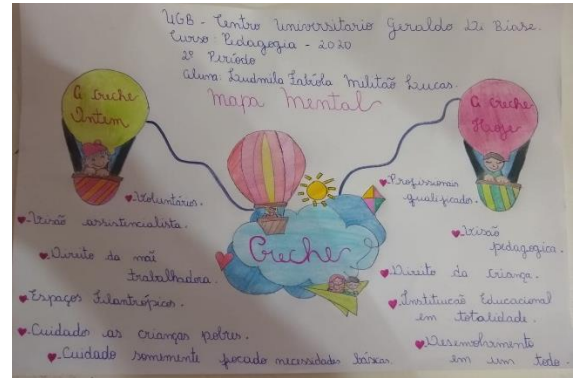 UGB - Centro Universitario Geraldo Di Biase.
Curso: Pedagogia - 2020
2º Período
Aluna: Ludmila Fabíola Militão Lucas.
Mapa Mental
A Creche
Ontem
A Creche
Hoje
Creche
Voluntários.
Visão assistencialista.
Direito da mãe
trabalhadora.
Espaços Filantrópicos.
Cuidados as crianças pobres.
Cuidado somemente focado necessidades básicas.
Profissionais
qualificados.
Visão
pedagogica.
Direito da criança.
Instituição Educacional
em totalidade.
Desenvolvimento
em um todo.